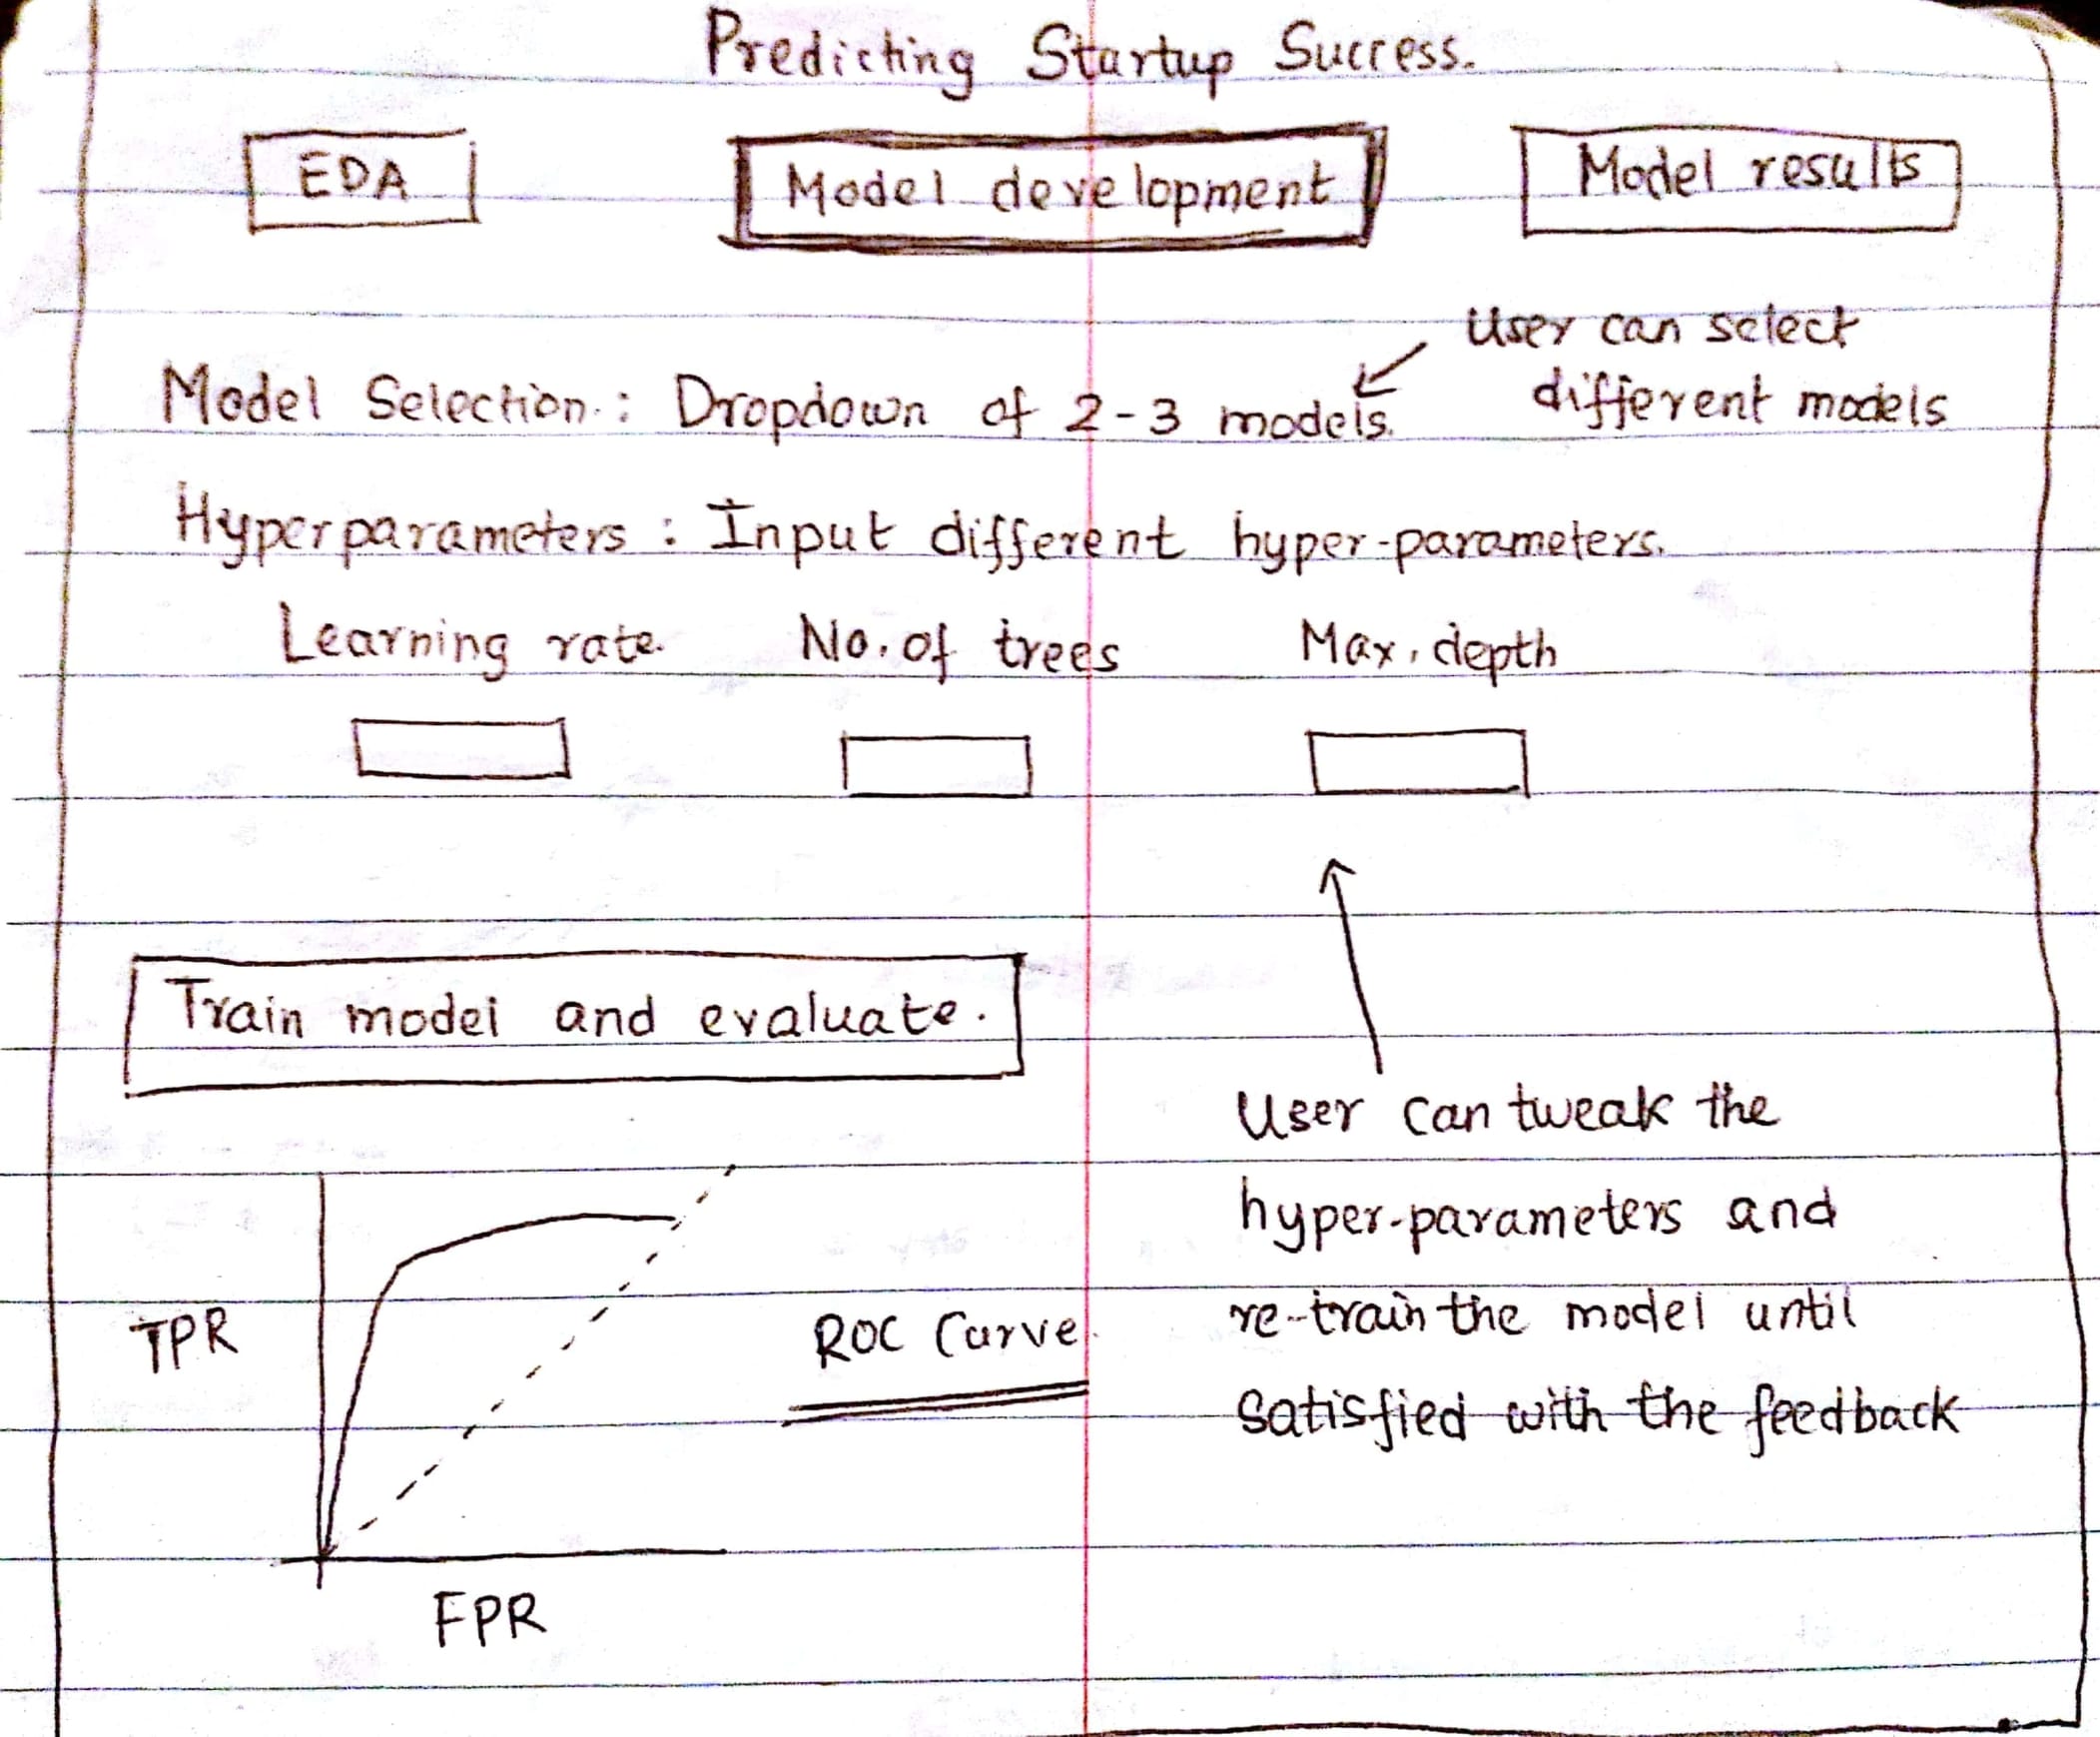 Predicting Startup Success.
EDA
Model development
Model results
User can select
different models
Model Selection : Dropdown of 2-3 models.
Hyperparameters : Input different hyper-parameters.
Learning rate. No. of trees Max. depth
Train model and evaluate.
User can tweak the
hyper-parameters and
re-train the model until
satisfied with the feedback
TPR
ROC Curve.
FPR